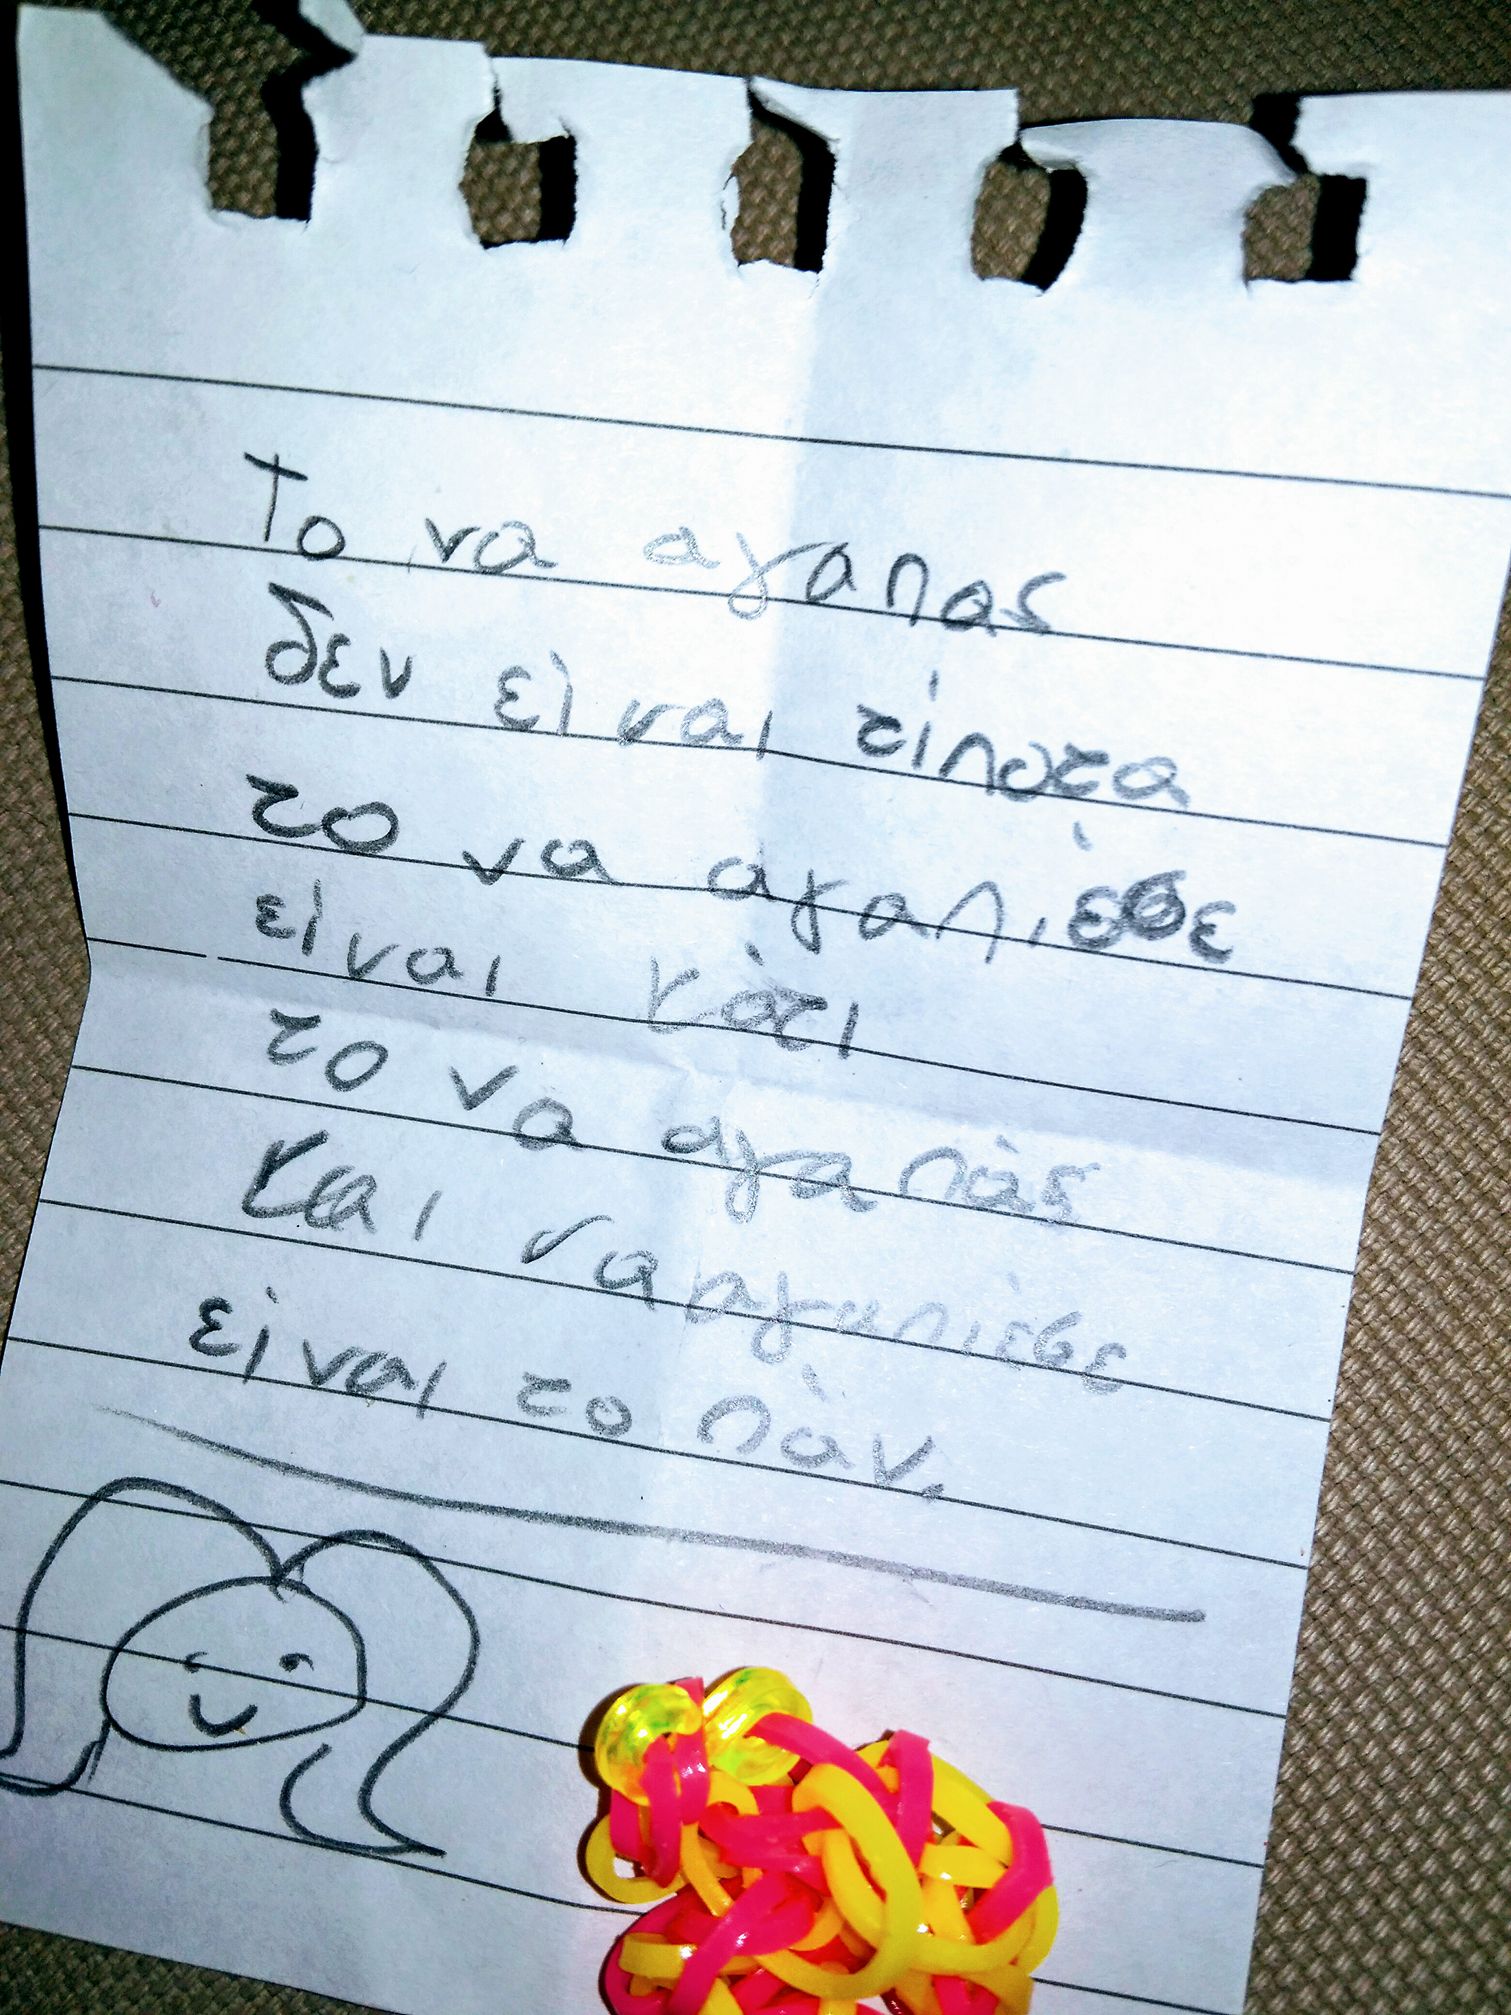 Το να αγαπας
δεν είναι τίποτα
το να αγαπιέσε
είναι κάτι
το να αγαπάς
και να αγαπιέσε
είναι το πάν.